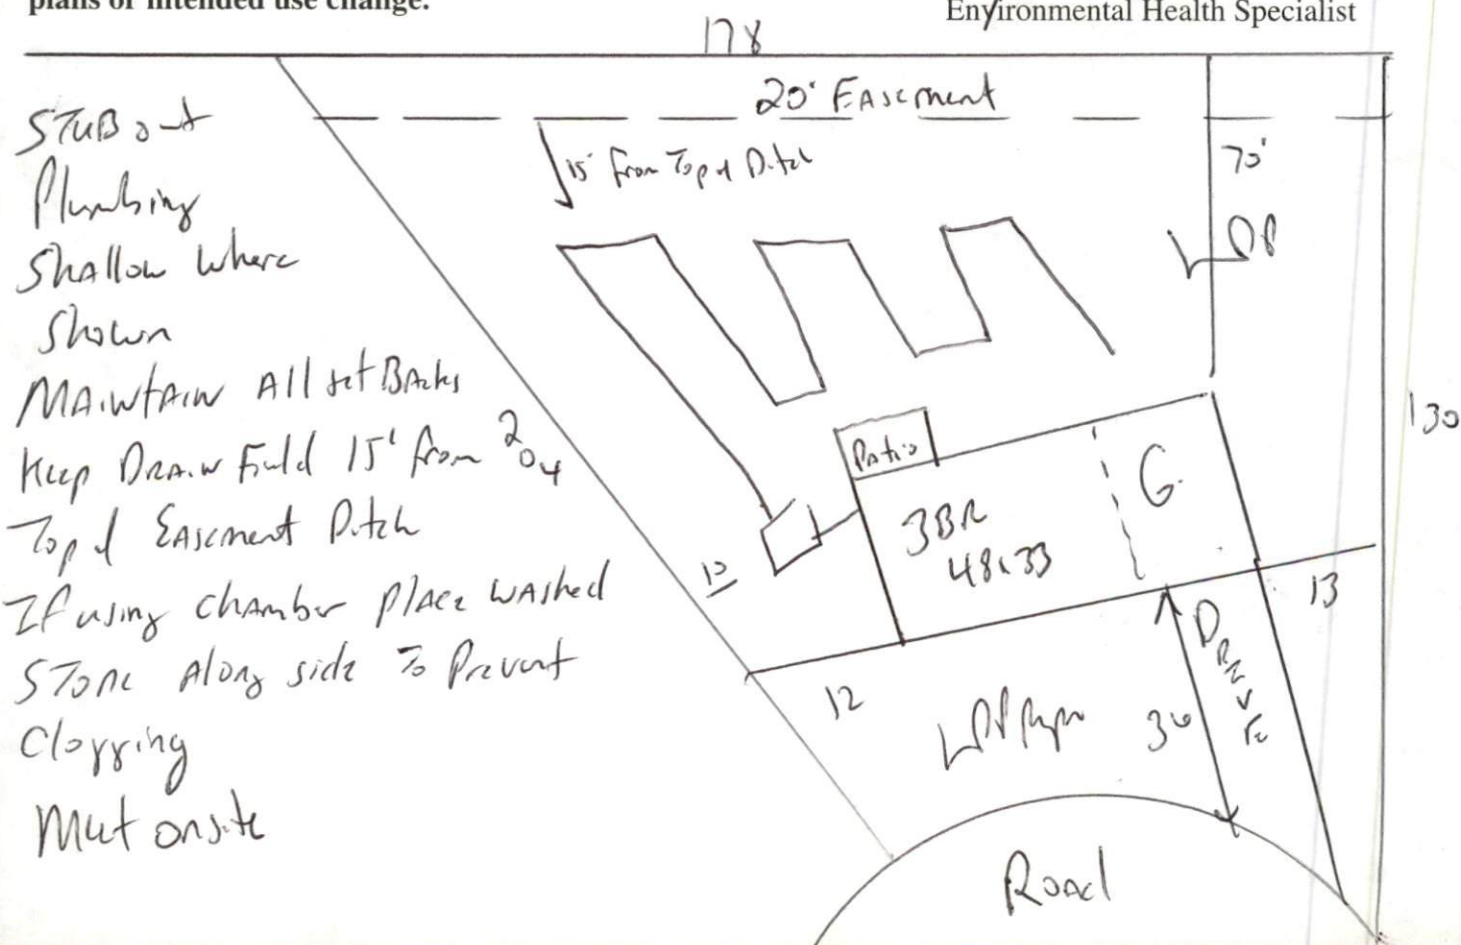 plans or intended use change.
Environmental Health Specialist
178
20' EASEMENT
15' from Top of Ditch
70'
STUB out
Plumbing
Shallow Where
Shown
MAINTAIN All setBacks
Keep DRAIN Field 15' from
Top of EASEMENT Ditch
If using chamber place washed
STONE Along side To Prevent
Clogging
Meet onsite
204
130
Patio
G
3BR
48x33
10
13
12
DRIVE
Road